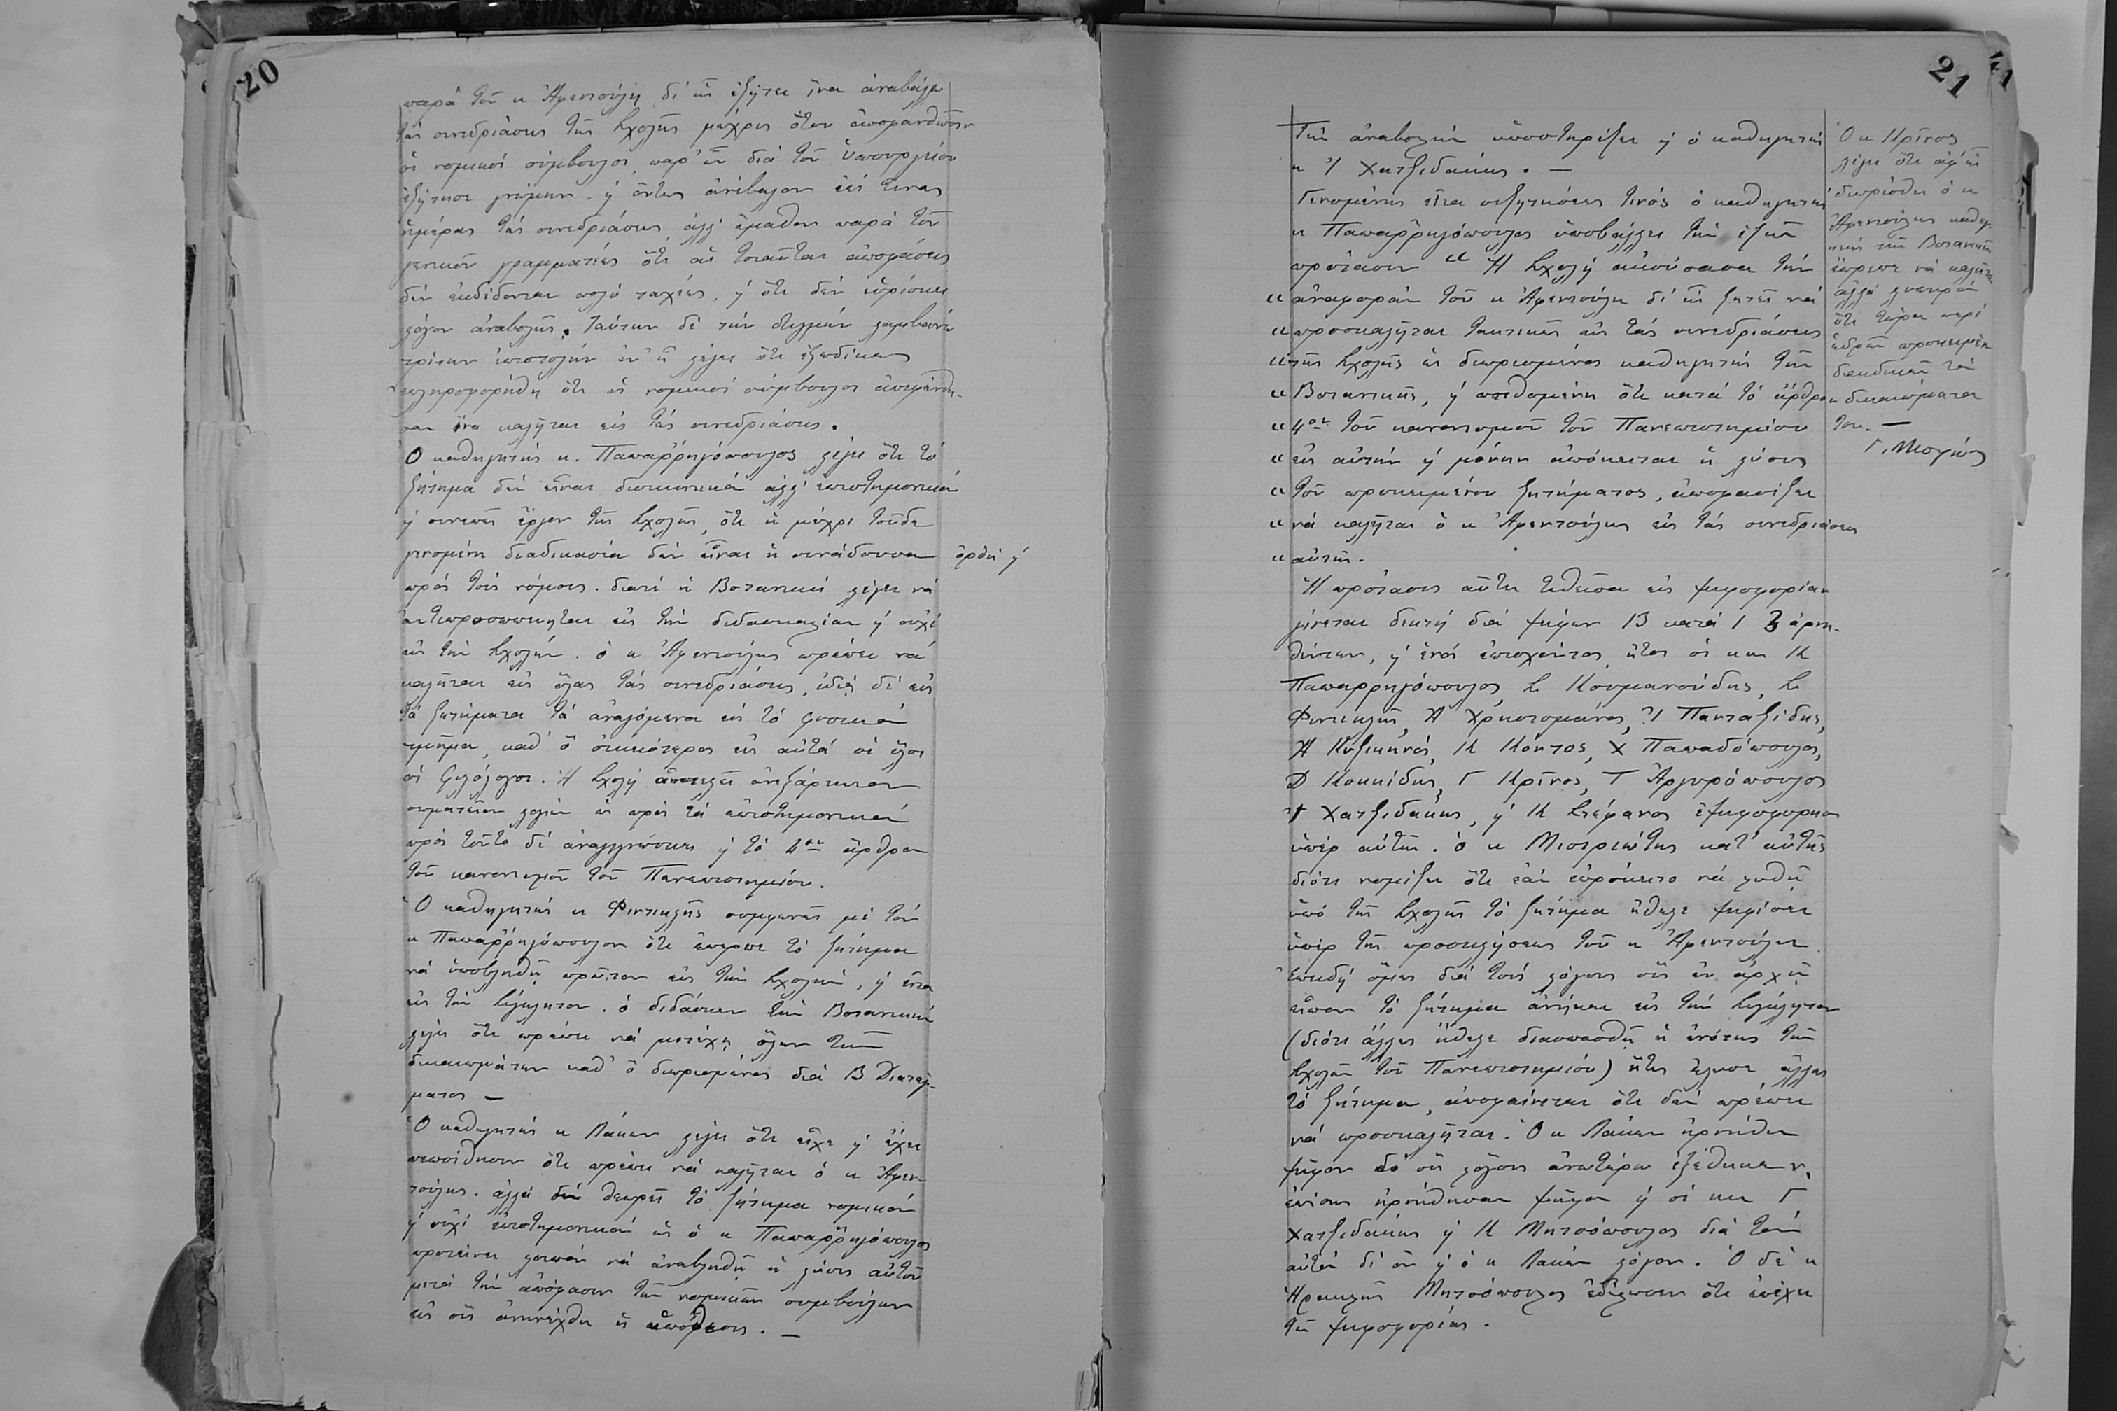 20
παρὰ τοῦ κ Ἀφεντούλη δι' ἧς ἐζήτει ἵνα ἀναβάλῃ
τὰς συνεδριάσεις τῆς Σχολῆς μέχρις ὅτου ἀποφανθῶσιν
οἱ νομικοὶ σύμβουλοι, παρ' ὧν διὰ τοῦ Ὑπουργείου
ἐζήτησε γνώμην. ᾳ ὄντως ἀνέβαλον ἐπί τινας
ἡμέρας τὰς συνεδριάσεις ἀλλ' ἔμαθον παρὰ τοῦ
γενικοῦ γραμματέως ὅτι αἱ τοιαῦται ἀποφάσεις
δὲν ἐκδίδονται πολὺ ταχέως, ᾳ ὅτι δὲν εὑρίσκει
λόγον ἀναβολῆς. Ταύτην δὲ τὴν στιγμὴν λαμβάνω
τρίτην ἐπιστολὴν ἐν ᾗ λέγει ὅτι ἐξωδίκως
ἐπληροφορήθη ὅτι οἱ νομικοὶ σύμβουλοι ἀπεφάνθη-
σαν ἵνα καλῆται εἰς τὰς συνεδριάσεις.
Ὁ καθηγητὴς κ. Παπαῤῥηγόπουλος λέγει ὅτι τὸ
ζήτημα δὲν εἶναι διοικητικὸν ἀλλ' ἐπιστημονικὸν
ᾳ συνεπῶς ἔργον τῆς Σχολῆς, ὅτι ἡ μέχρι τοῦδε
γενομένη διαδικασία δὲν εἶναι ἡ συνάδουσα ὀρθὴ ᾳ
πρὸς τοὺς νόμους. διατὶ ἡ Βοτανικὴ λέγει νὰ
ἀντιπροσωπεύηται εἰς τὴν διδασκαλίαν ᾳ οὐχὶ
εἰς τὴν Σχολήν. ὁ κ Ἀφεντούλης πρέπει νὰ
καλῆται εἰς ὅλας τὰς συνεδριάσεις, ἰδίᾳ δὲ εἰς
τὰ ζητήματα τὰ ἀναγόμενα εἰς τὸ φυσικὸν
τμῆμα, καθ' ὃ οἰκειότερος εἰς αὐτὰ ἢ ὅλοι
οἱ φιλόλογοι. Ἡ Σχολὴ ἀποτελεῖ ἀνεξάρτητον
σωματεῖον λοιπὸν ὡς πρὸς τὰ ἐπιστημονικὰ
πρὸς τοῦτο δὲ ἀναγινώσκει ᾳ τὸ 4ον ἄρθρον
τοῦ κανονισμοῦ τοῦ Πανεπιστημίου.
Ὁ καθηγητὴς κ Φιντικλῆς συμφωνεῖ μὲ τὸν
κ Παπαῤῥηγόπουλον ὅτι ἔπρεπε τὸ ζήτημα
νὰ ὑποβληθῇ πρῶτον εἰς τὴν Σχολήν, ᾳ εἶτα
εἰς τὴν Σύγκλητον. ὁ διδάσκων τὴν Βοτανικὴν
λέγει ὅτι πρέπει νὰ μετέχῃ ὅλων τῶν
δικαιωμάτων καθ' ὃ διωρισμένος διὰ Β Διατάγ-
ματος —
Ὁ καθηγητὴς κ Λάκων λέγει ὅτι εἶχε ᾳ ἔχει
πεποίθησιν ὅτι πρέπει νὰ καλῆται ὁ κ Ἀφεν-
τούλης. ἀλλὰ δὲν θεωρεῖ τὸ ζήτημα νομικὸν
ᾳ οὐχὶ ἐπιστημονικὸν ὡς ὁ κ Παπαῤῥηγόπουλος
προτείνει λοιπὸν νὰ ἀναβληθῇ ἡ λύσις αὐτοῦ
μετὰ τὴν ἀπόφασιν τῶν νομικῶν συμβούλων
εἰς οὓς ἀνηνέχθη ἡ ὑπόθεσις. —
21
Τὴν ἀναβολὴν ὑποστηρίζει ᾳ ὁ καθηγητὴς
κ Ἰ Χατζιδάκις. —
Γενομένης εἶτα συζητήσεώς τινος ὁ καθηγητὴς
κ Παπαῤῥηγόπουλος ὑποβάλλει τὴν ἑξῆς
πρότασιν " Ἡ Σχολὴ ἀκούσασα τὴν
" ἀναφορὰν τοῦ κ Ἀφεντούλη δι' ἧς ζητεῖ νὰ
" προσκαλῆται τακτικῶς εἰς τὰς συνεδριάσεις
" τῆς Σχολῆς ὡς διωρισμένος καθηγητὴς τῆς
" Βοτανικῆς, ᾳ πειθομένη ὅτι κατὰ τὸ ἄρθρον
" 4ον τοῦ κανονισμοῦ τοῦ Πανεπιστημίου
" εἰς αὐτὴν ᾳ μόνην ἀπόκειται ἡ λύσις
" τοῦ προκειμένου ζητήματος, ἀποφασίζει
" νὰ καλῆται ὁ κ Ἀφεντούλης εἰς τὰς συνεδριάσεις
" αὐτῆς.
Ἡ πρότασις αὕτη τεθεῖσα εἰς ψηφοφορίαν
γίνεται δεκτὴ διὰ ψήφων 13 κατὰ 1 3 ἀρνη-
θέντων, ᾳ ἑνὸς ἐπισχόντος, ἤτοι οἱ κκ Κ
Παπαρρηγόπουλος, Σ Κουμανούδης, Σ
Φιντικλῆς, Ἀ Χρηστομάνος, Ἰ Πανταζίδης,
Ἀ Κυζικηνός, Κ Κόντος, Χ Παπαδόπουλος,
Δ Κοκκίδης, Γ Κρῖνος, Τ Ἀργυρόπουλος
Ἰ Χατζιδάκης, ᾳ Κ Στέφανος ἐψηφοφόρησαν
ὑπὲρ αὐτῆς. ὁ κ Μιστριώτης κατ' αὐτῆς
διότι νομίζει ὅτι ἐὰν ἐπρόκειτο νὰ λυθῇ
ὑπὸ τῆς Σχολῆς τὸ ζήτημα ἤθελε ψηφίσει
ὑπὲρ τῆς προσκλήσεως τοῦ κ Ἀφεντούλη.
Ἐπειδὴ ὅμως διὰ τοὺς λόγους οὓς ἐν ἀρχῇ
εἶπον τὸ ζήτημα ἀνήκει εἰς τὴν Σύγκλητον
(διότι ἄλλως ἤθελε διασπασθῇ ἡ ἑνότης τῶν
Σχολῶν τοῦ Πανεπιστημίου) ἥτις ἔλυσε ἄλλως
τὸ ζήτημα, ἀποφαίνεται ὅτι δὲν πρέπει
νὰ προσκαλῆται. Ὁ κ Λάκων ἠρνήθη
ψῆφον δι' οὓς λόγους ἀνωτέρω ἐξέθηκεν,
ἐπίσης ἠρνήθησαν ψῆφον ᾳ οἱ κκ Γ
Χατζιδάκης ᾳ Κ Μητσόπουλος διὰ τὸν
αὐτὸν δι' ὃν ᾳ ὁ κ Λάκων λόγον. Ὁ δὲ κ
Ἡρακλῆς Μητσόπουλος ἐδήλωσεν ὅτι ἐπέχει
τῆς ψηφοφορίας.
Ὁ κ Κρῖνος
λέγει ὅτι ἀφ' ἧς
διωρίσθη ὁ κ
Ἀφεντούλης καθηγ
ητὴς τῆς Βοτανικῆς
ἔπρεπε νὰ καλῆται
ἀλλὰ
ὅτι τώρα περὶ
ἑδρῶν προκειμένου
διεκδικεῖ τὰ
δικαιώματα
του. —